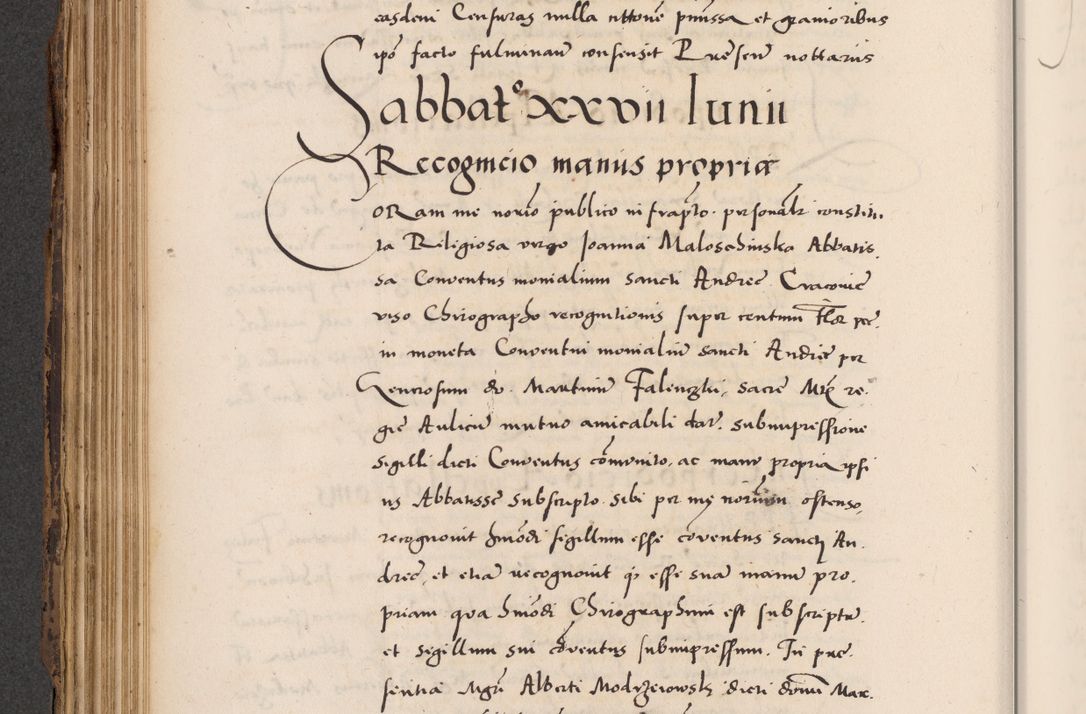 easdem Censuras nulla cittone pmissa et gravioribus
ipo facto fulminari consensit Presente nottarius
Sabbato xxvii Iunii
Recognicio manus propriæ
CORam me notrio publico infrapto. personalr constitu.
ta Religiosa virgo Joanna Maloschinska Abbatis.
sa Conventus monialium Sancti Andreę Cracovię
viso Chirographo recognitionis super centum flor pec.
in moneta Conventui monialiu Sancti Andreę per
Generosum do. Martinu Falenczki, Sacrę Mtx re.
gię Aulicu mutuo amicabili dat. Subimpressione
Sigilli dicti Conventus comunito, ac manu propria ipsi
us Abbatissę Subscripto. Sibi per mę ostenso,
recognovit hmodi sigillum esse coventus Sancti An.
dreę, et etia recognovit q esse sua manu pro.
priam qua hmodi Chirographum est subscriptu.
et Sigillum sui coventus subimpressum. In pre.
sentia Mgri Alberti Modrzeiowsky dicti domi Mar.